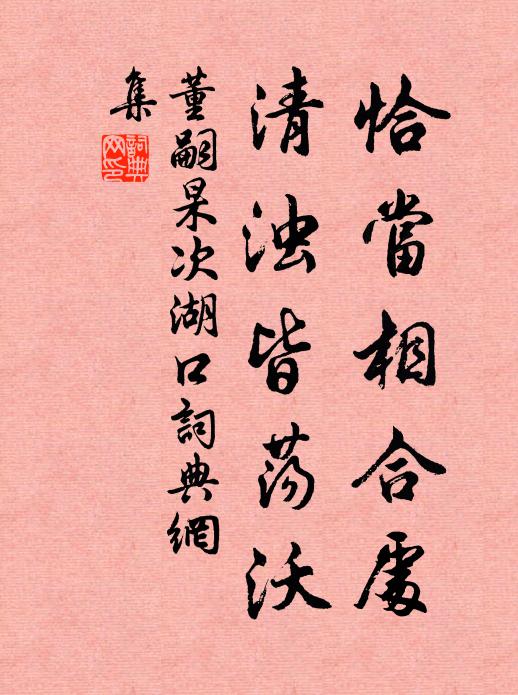 恰當相合處
清浊皆蕩沃
董嗣杲次湖口詞典網
集
詞典
网印